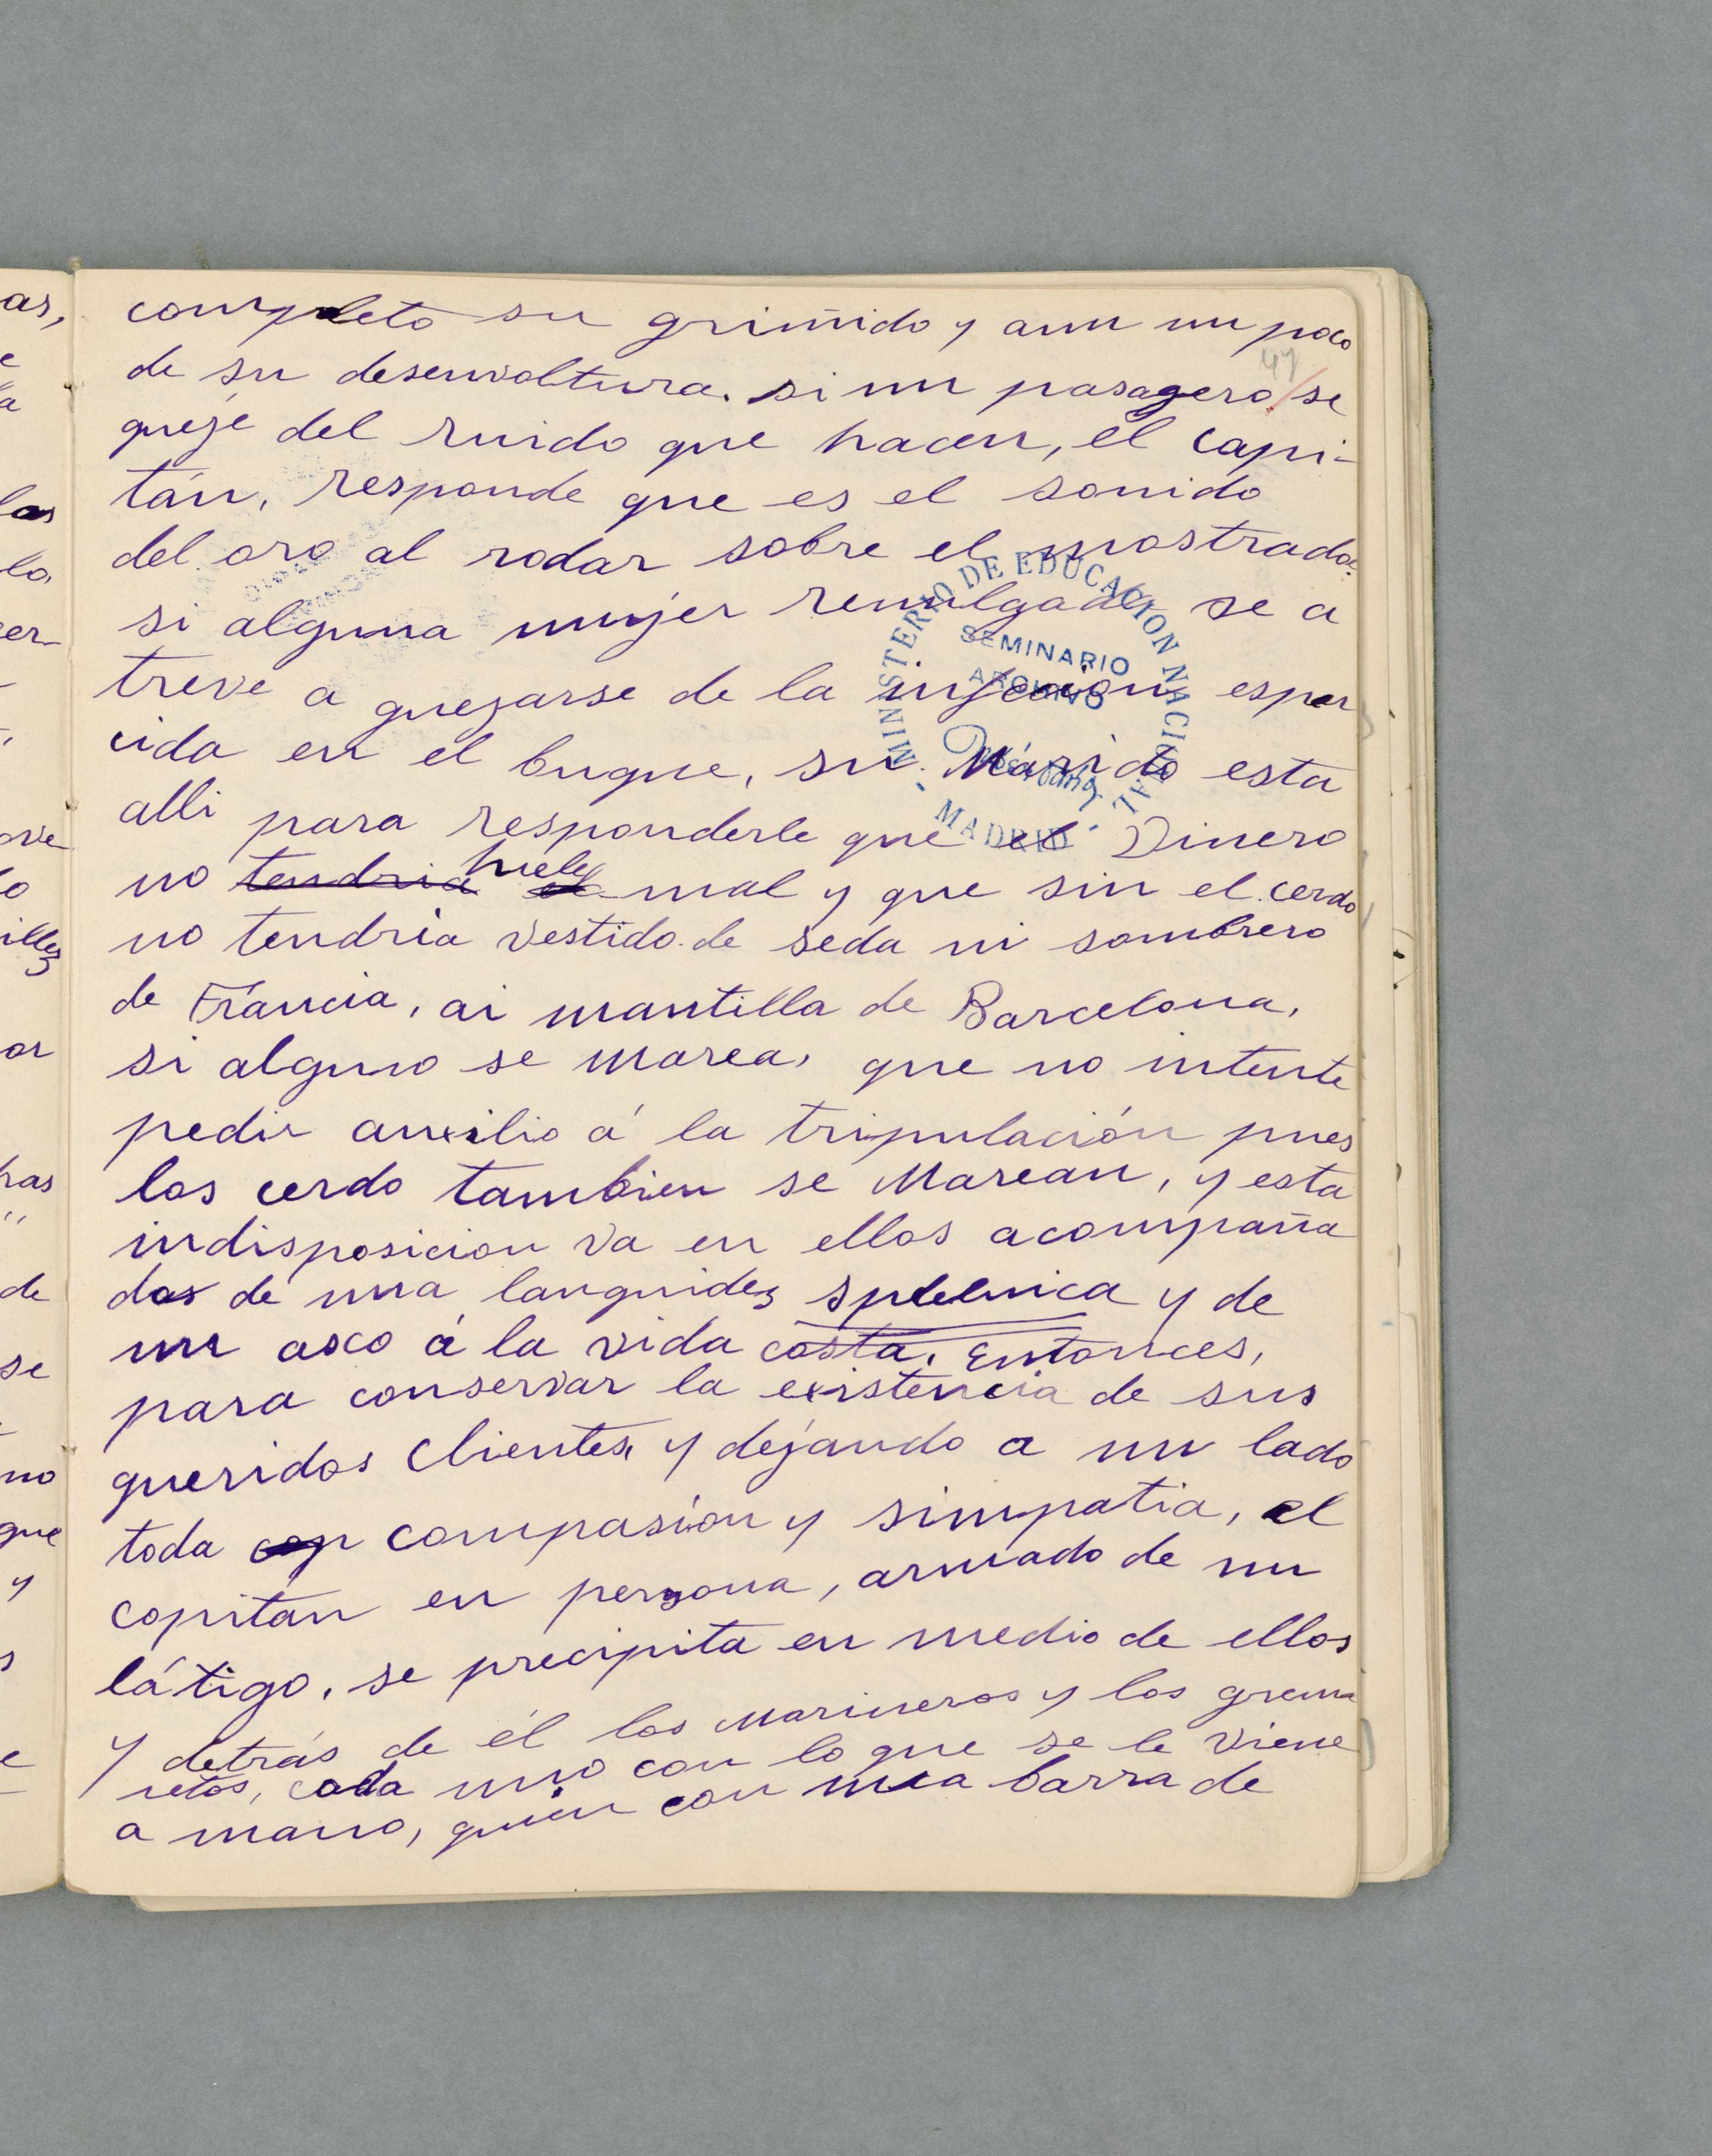 completo su griñido y aun un poco
47
de su desenvoltura. si un pasagero/se
queje del ruido que hacen, el capi-
tán, responde que es el sonido
del oro al rodar sobre el mostrador.
si alguna mujer remilgada se a
treve a quejarse de la infeción espar
cida en el buque, su Marido esta
alli para responderle que el Dinero
no tendria huele mal y que sin el cerdo
no tendria vestido de seda ni sombrero
de Fráncia, ni mantilla de Barcelona,
si alguno se marea, que no intente
pedir auxilio á la tripulación pues
los cerdo tambien se Marean, y esta
indisposicion va en ellos acompaña
das de una languidez spleenica y de
un asco á la vida costa. Entonces,
para conservar la existencia de sus
queridos Clientes, y dejando a un lado
toda cop compasión y simpatia, el
copitan en persona, armado de un
látigo, se precipita en medio de ellos
y detrás de él los Marineros y los grum
etos, cada uno con lo que se le viene
a mano, quien con una barra de
MINISTERIO DE EDUCACION NACIONAL
SEMINARIO
ARCHIVO
MADRID
as,
e
a
las
lo
cer-
ove
lo
illez
or
has
de
se
no
que
y
s
e